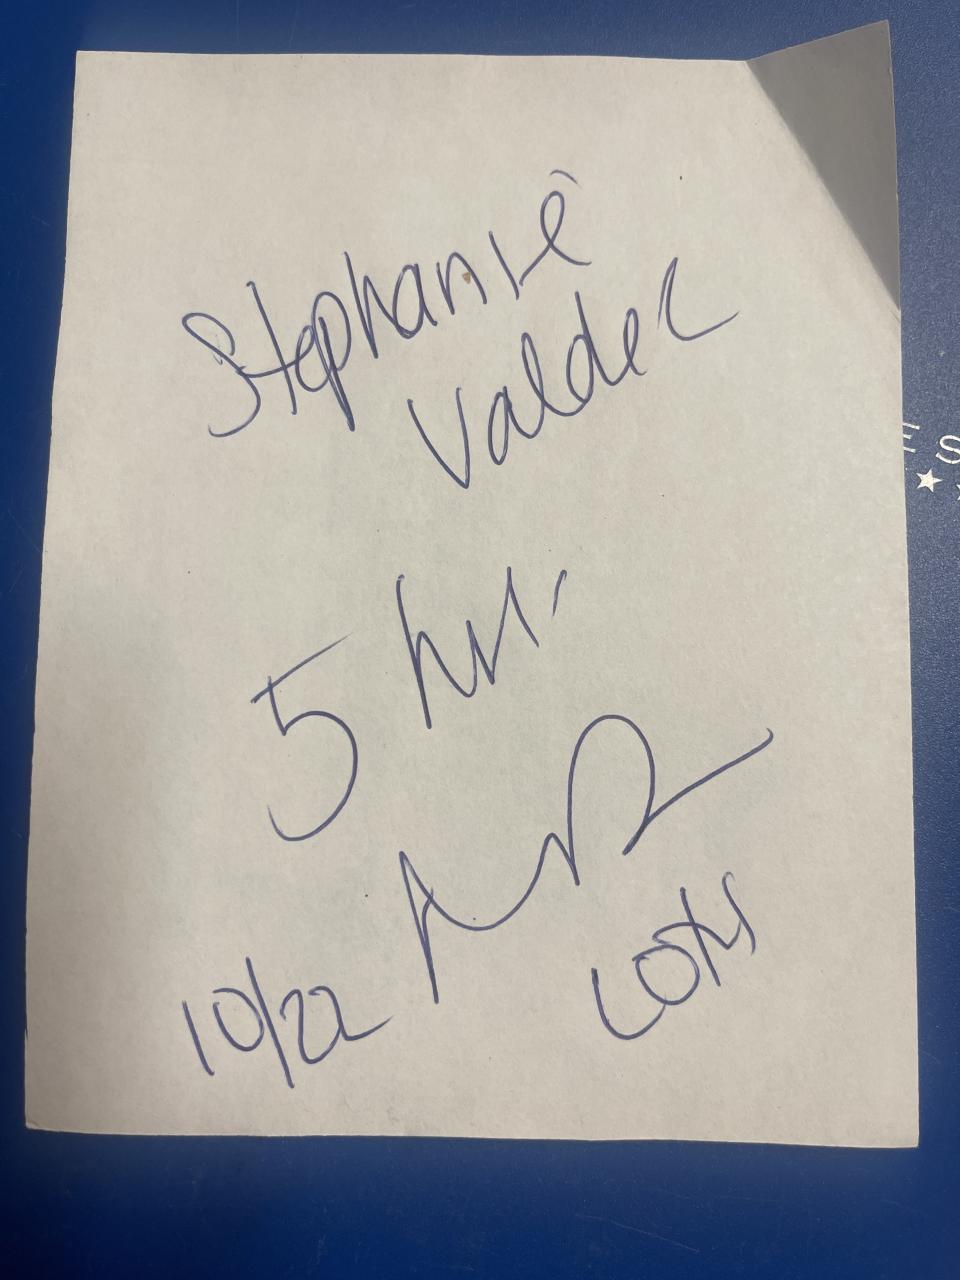 Stephanie
Valdez
5 hrs.
10/22
COTA
ES